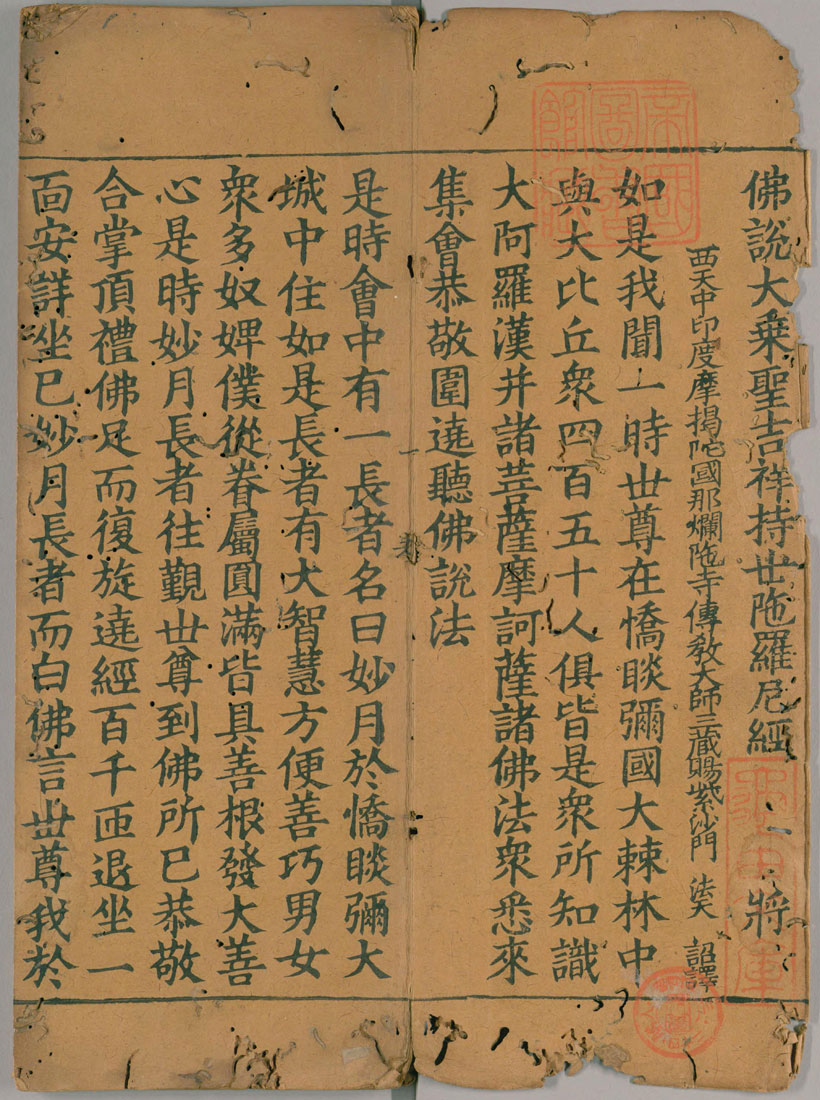 佛說大乗聖吉祥持世陁羅尼經 將
西天中印度摩揭陁國那爛陁寺傳敎大師三藏賜紫沙門 法天 詔譯
如是我聞一時世尊在憍睒彌國大棘林中
與大比丘衆四百五十人俱皆是衆所知識
大阿羅漢并諸菩薩摩訶薩諸佛法衆悉來
集會恭敬圍遶聽佛說法
是時會中有一長者名曰妙月於憍睒彌大
城中住如是長者有大智慧方便善巧男女
衆多奴婢僕從眷屬圓滿皆具善根發大善
心是時妙月長者往覲世尊到佛所已恭敬
合掌頂禮佛足而復旋遶經百千匝退坐一
靣安詳坐已妙月長者而白佛言世尊我於